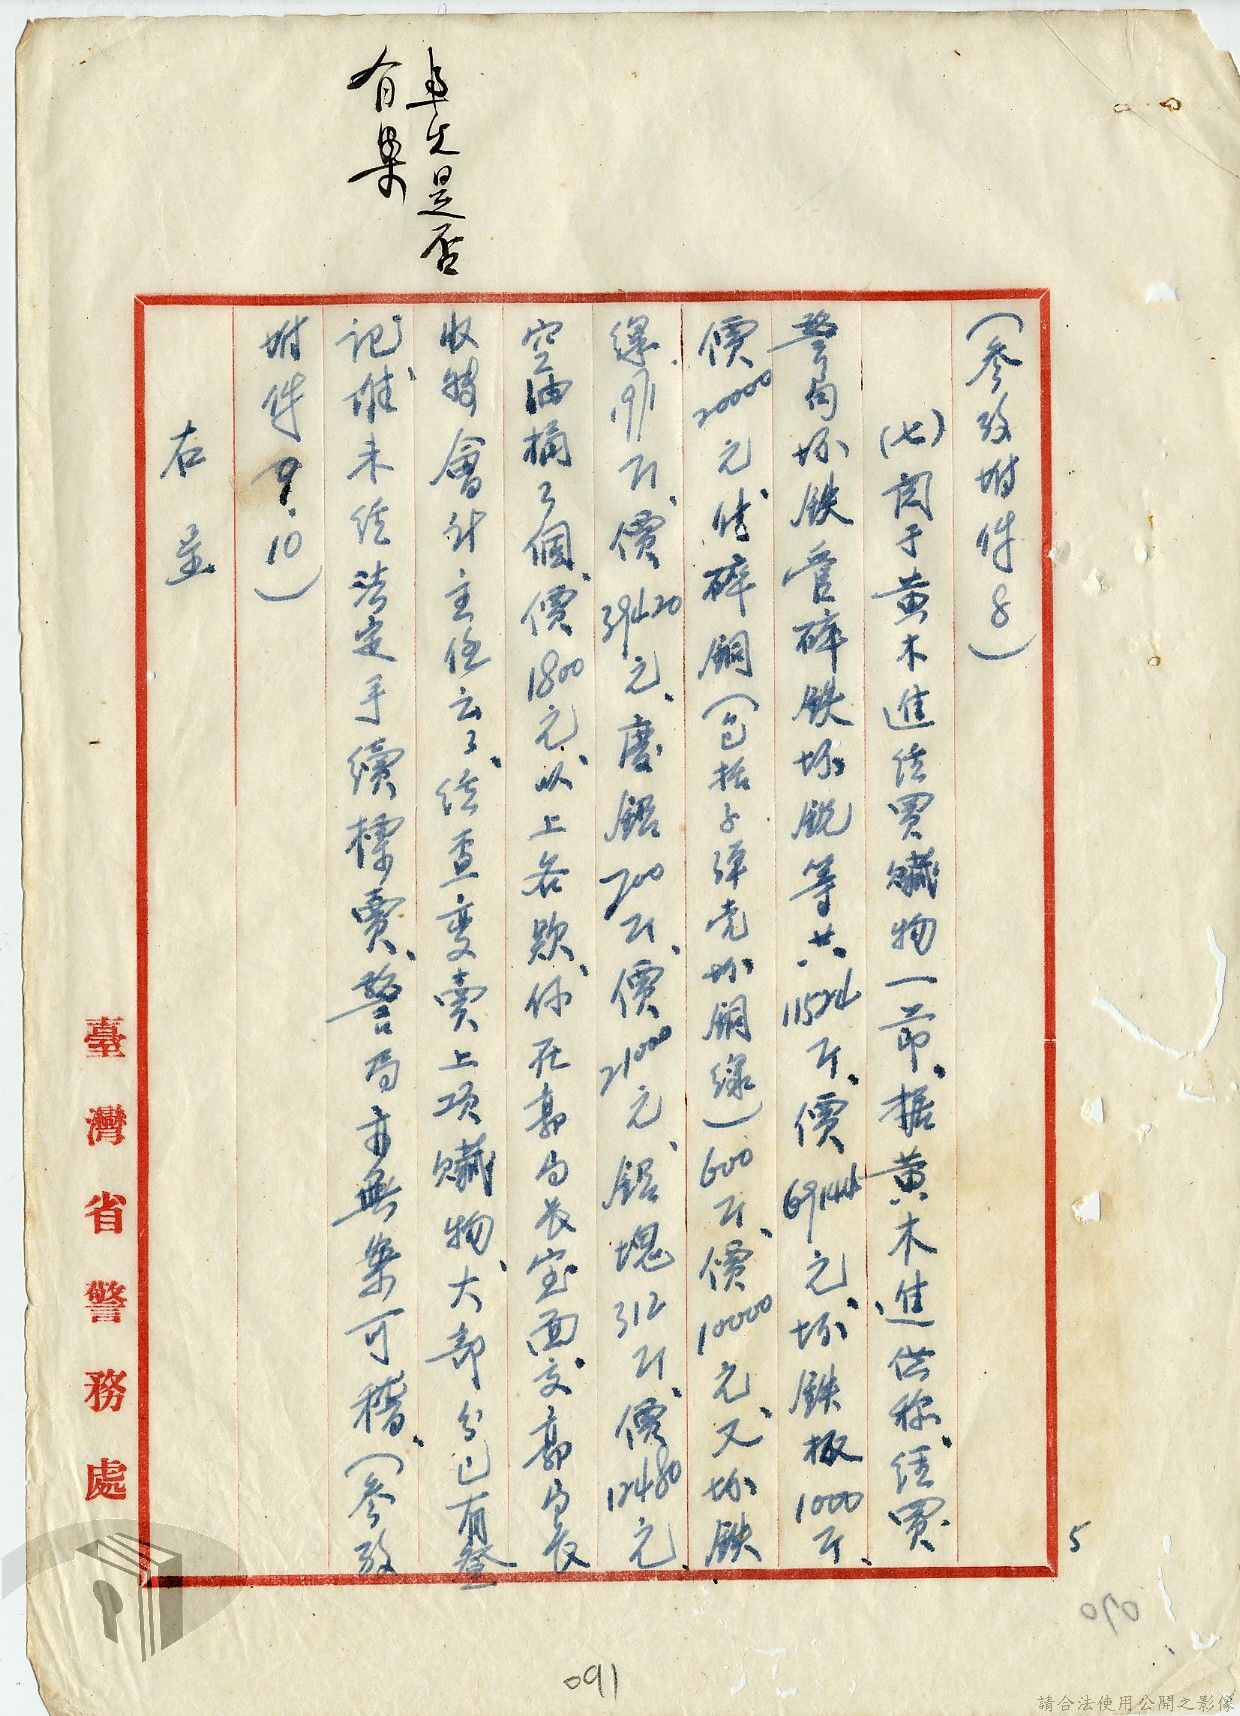 是否
有案
(参攷坿件8)
(七)関于黄木進結買贓物一節、据黄木進供称、経買
警局坏鉄管碎鉄坏銳等共11524斤、價69144元、坏鉄板1000斤、
價20000元、付碎銅(包括子弹壳坏銅線)600斤、價10000元、又坏鉄
線1971斤、價39420元、廢鋁700斤、價21000元、鋁塊312斤、價12480元、
空油桶3個、價1800元、以上各款、係在郭局長室面交郭局長
收轉會計主任云云、経查变賣上項贓物、大部分已有登
記、唯未経法定手續標賣、警局亦無案可稽、(参攷
坿件9.10)
右呈
臺灣省警務處
5
090
091
請合法使用公開之影像